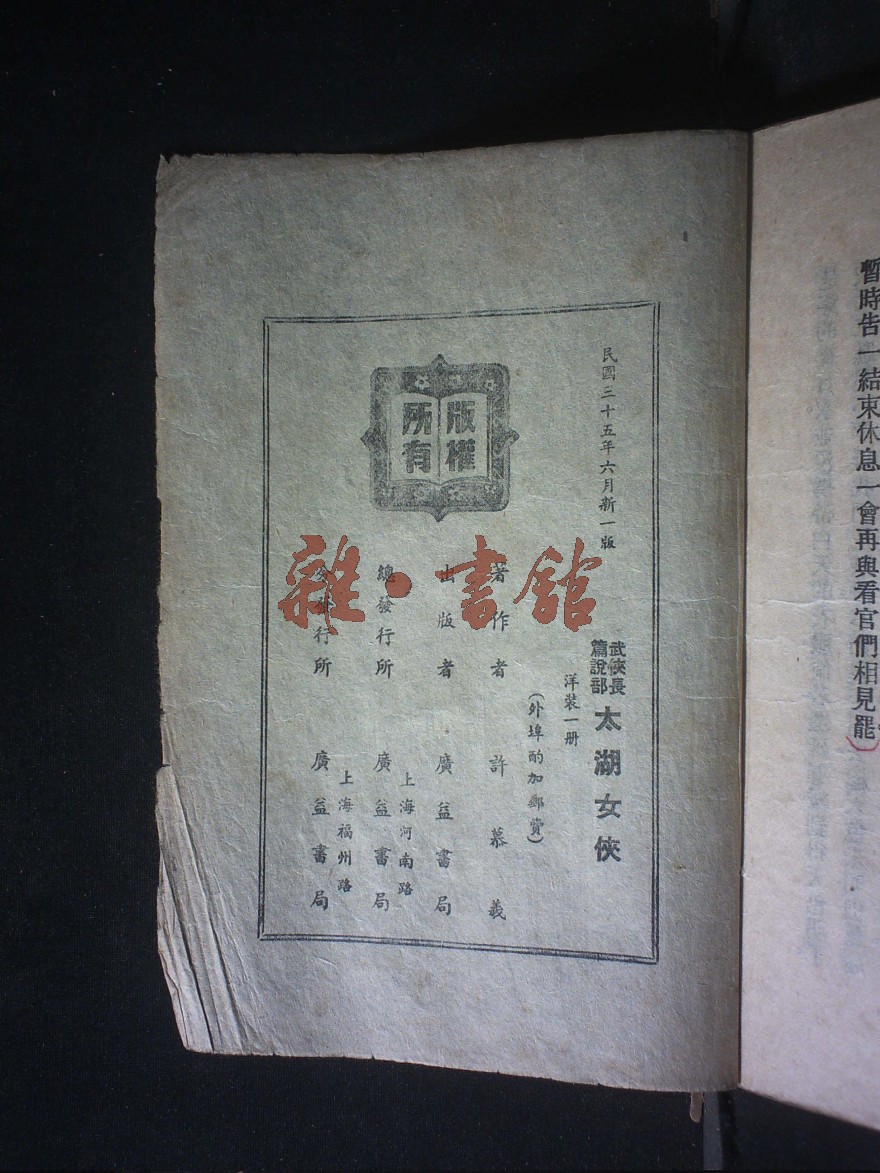 暫時告一結束休息一會再與看官們相見罷
民國三十五年六月新一版
武俠長篇說部 太湖女俠
洋裝一册
(外埠酌加郵費)
著作者 許慕義
出版者 廣益書局
上海河南路
總發行所 廣益書局
上海福州路
分發行所 廣益書局
版權所有
雜·書館